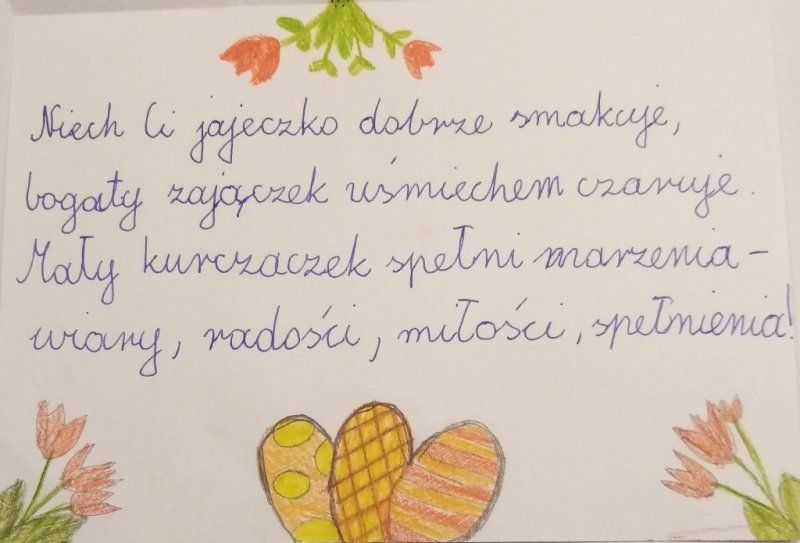 Niech Ci jajeczko dobrze smakuje,
bogaty zajączek uśmiechem czaruje.
Mały kurczaczek spełni marzenia -
wiary, radości, miłości, spełnienia!